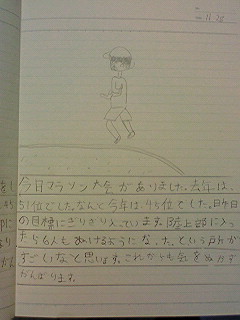 11.28
今日マラソン大会がありました。去年は、
51位でした。なんと今年は、45位でした。昨日
の目標にぎりぎり入っています。陸上部に入っ
たら6人もぬけるようになった。という所が
すごいなと思います。これからも気をぬかず
がんばります。